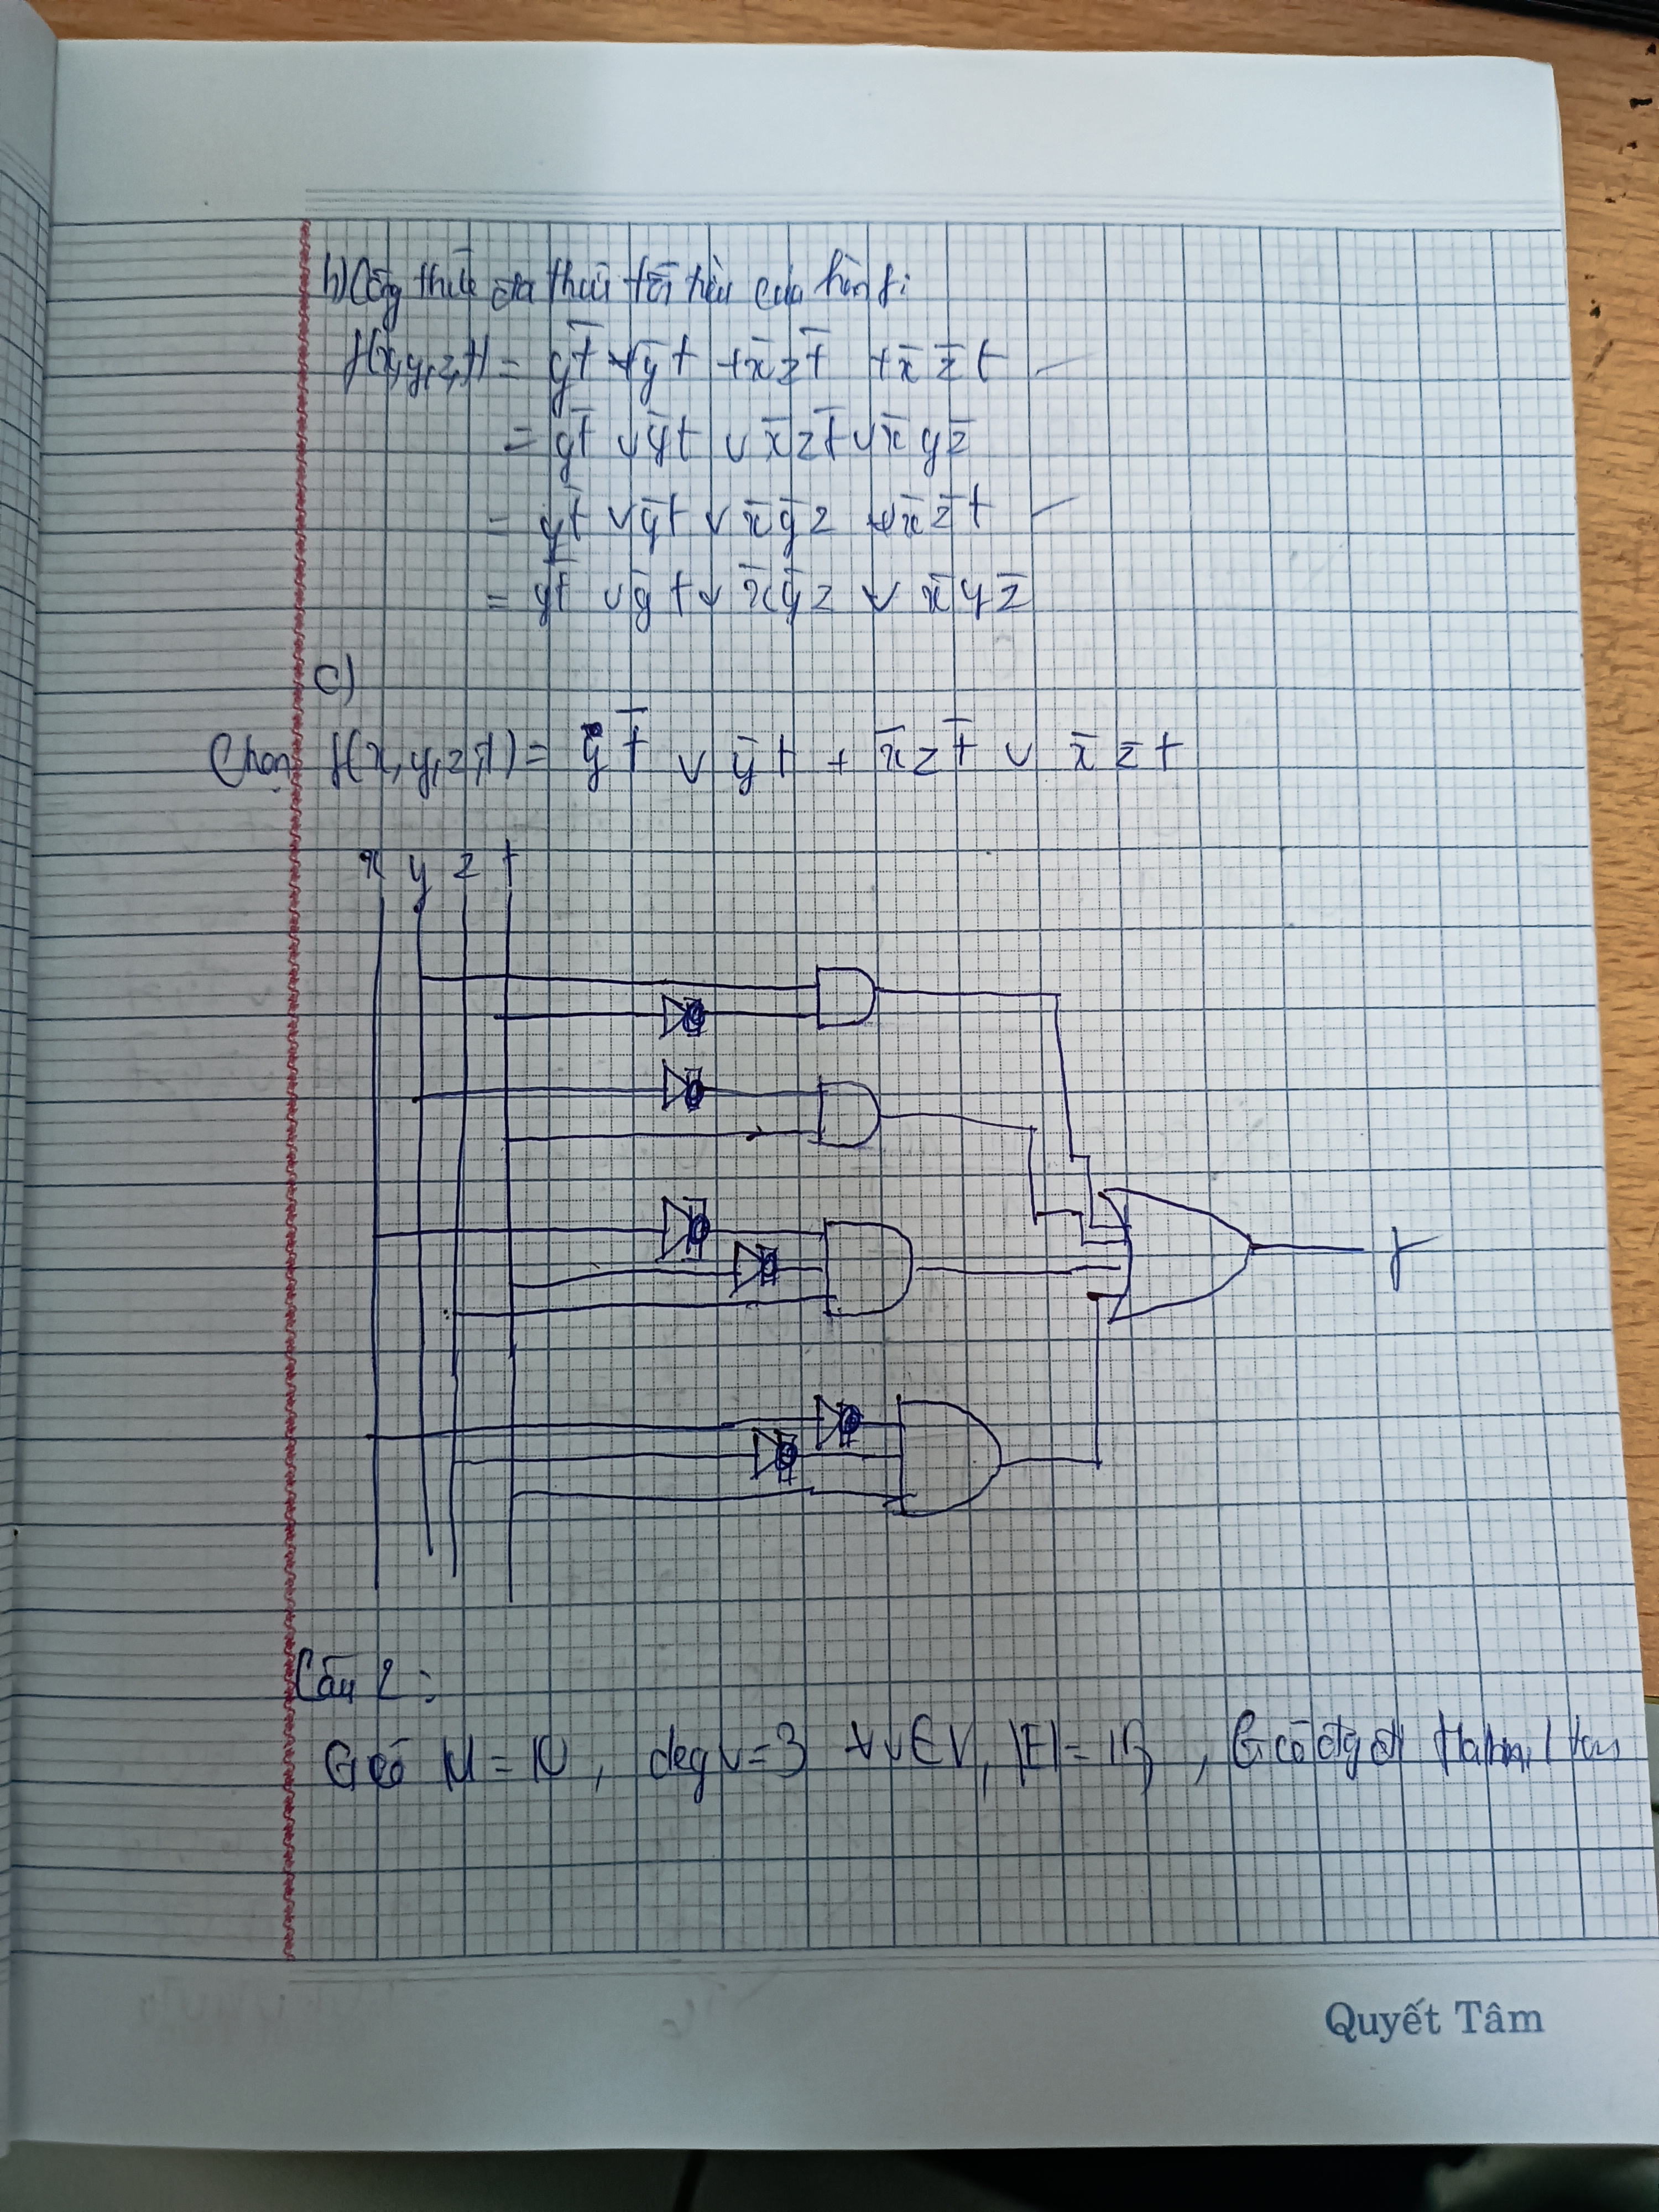 b) Công thức đa thức tối tiểu của hàm f:
f(x,y,z,t) = yt̅ ∨ y̅t + x̅zt̅ + x̅z̅t
= yt̅ ∨ y̅t ∨ x̅zt̅ ∨ x̅yz̅
= yt̅ ∨ y̅t ∨ x̅y̅z ∨ x̅z̅t
= yt̅ ∨ y̅t ∨ x̅y̅z ∨ x̅yz̅
c)
Chọn f(x,y,z,t) = yt̅ ∨ y̅t + x̅zt̅ ∨ x̅z̅t
x y z t
f
Câu 2:
G có |V| = 10, deg v = 3 ∀v∈V, |E| = 15, G có đg đi Hamilton
Quyết Tâm